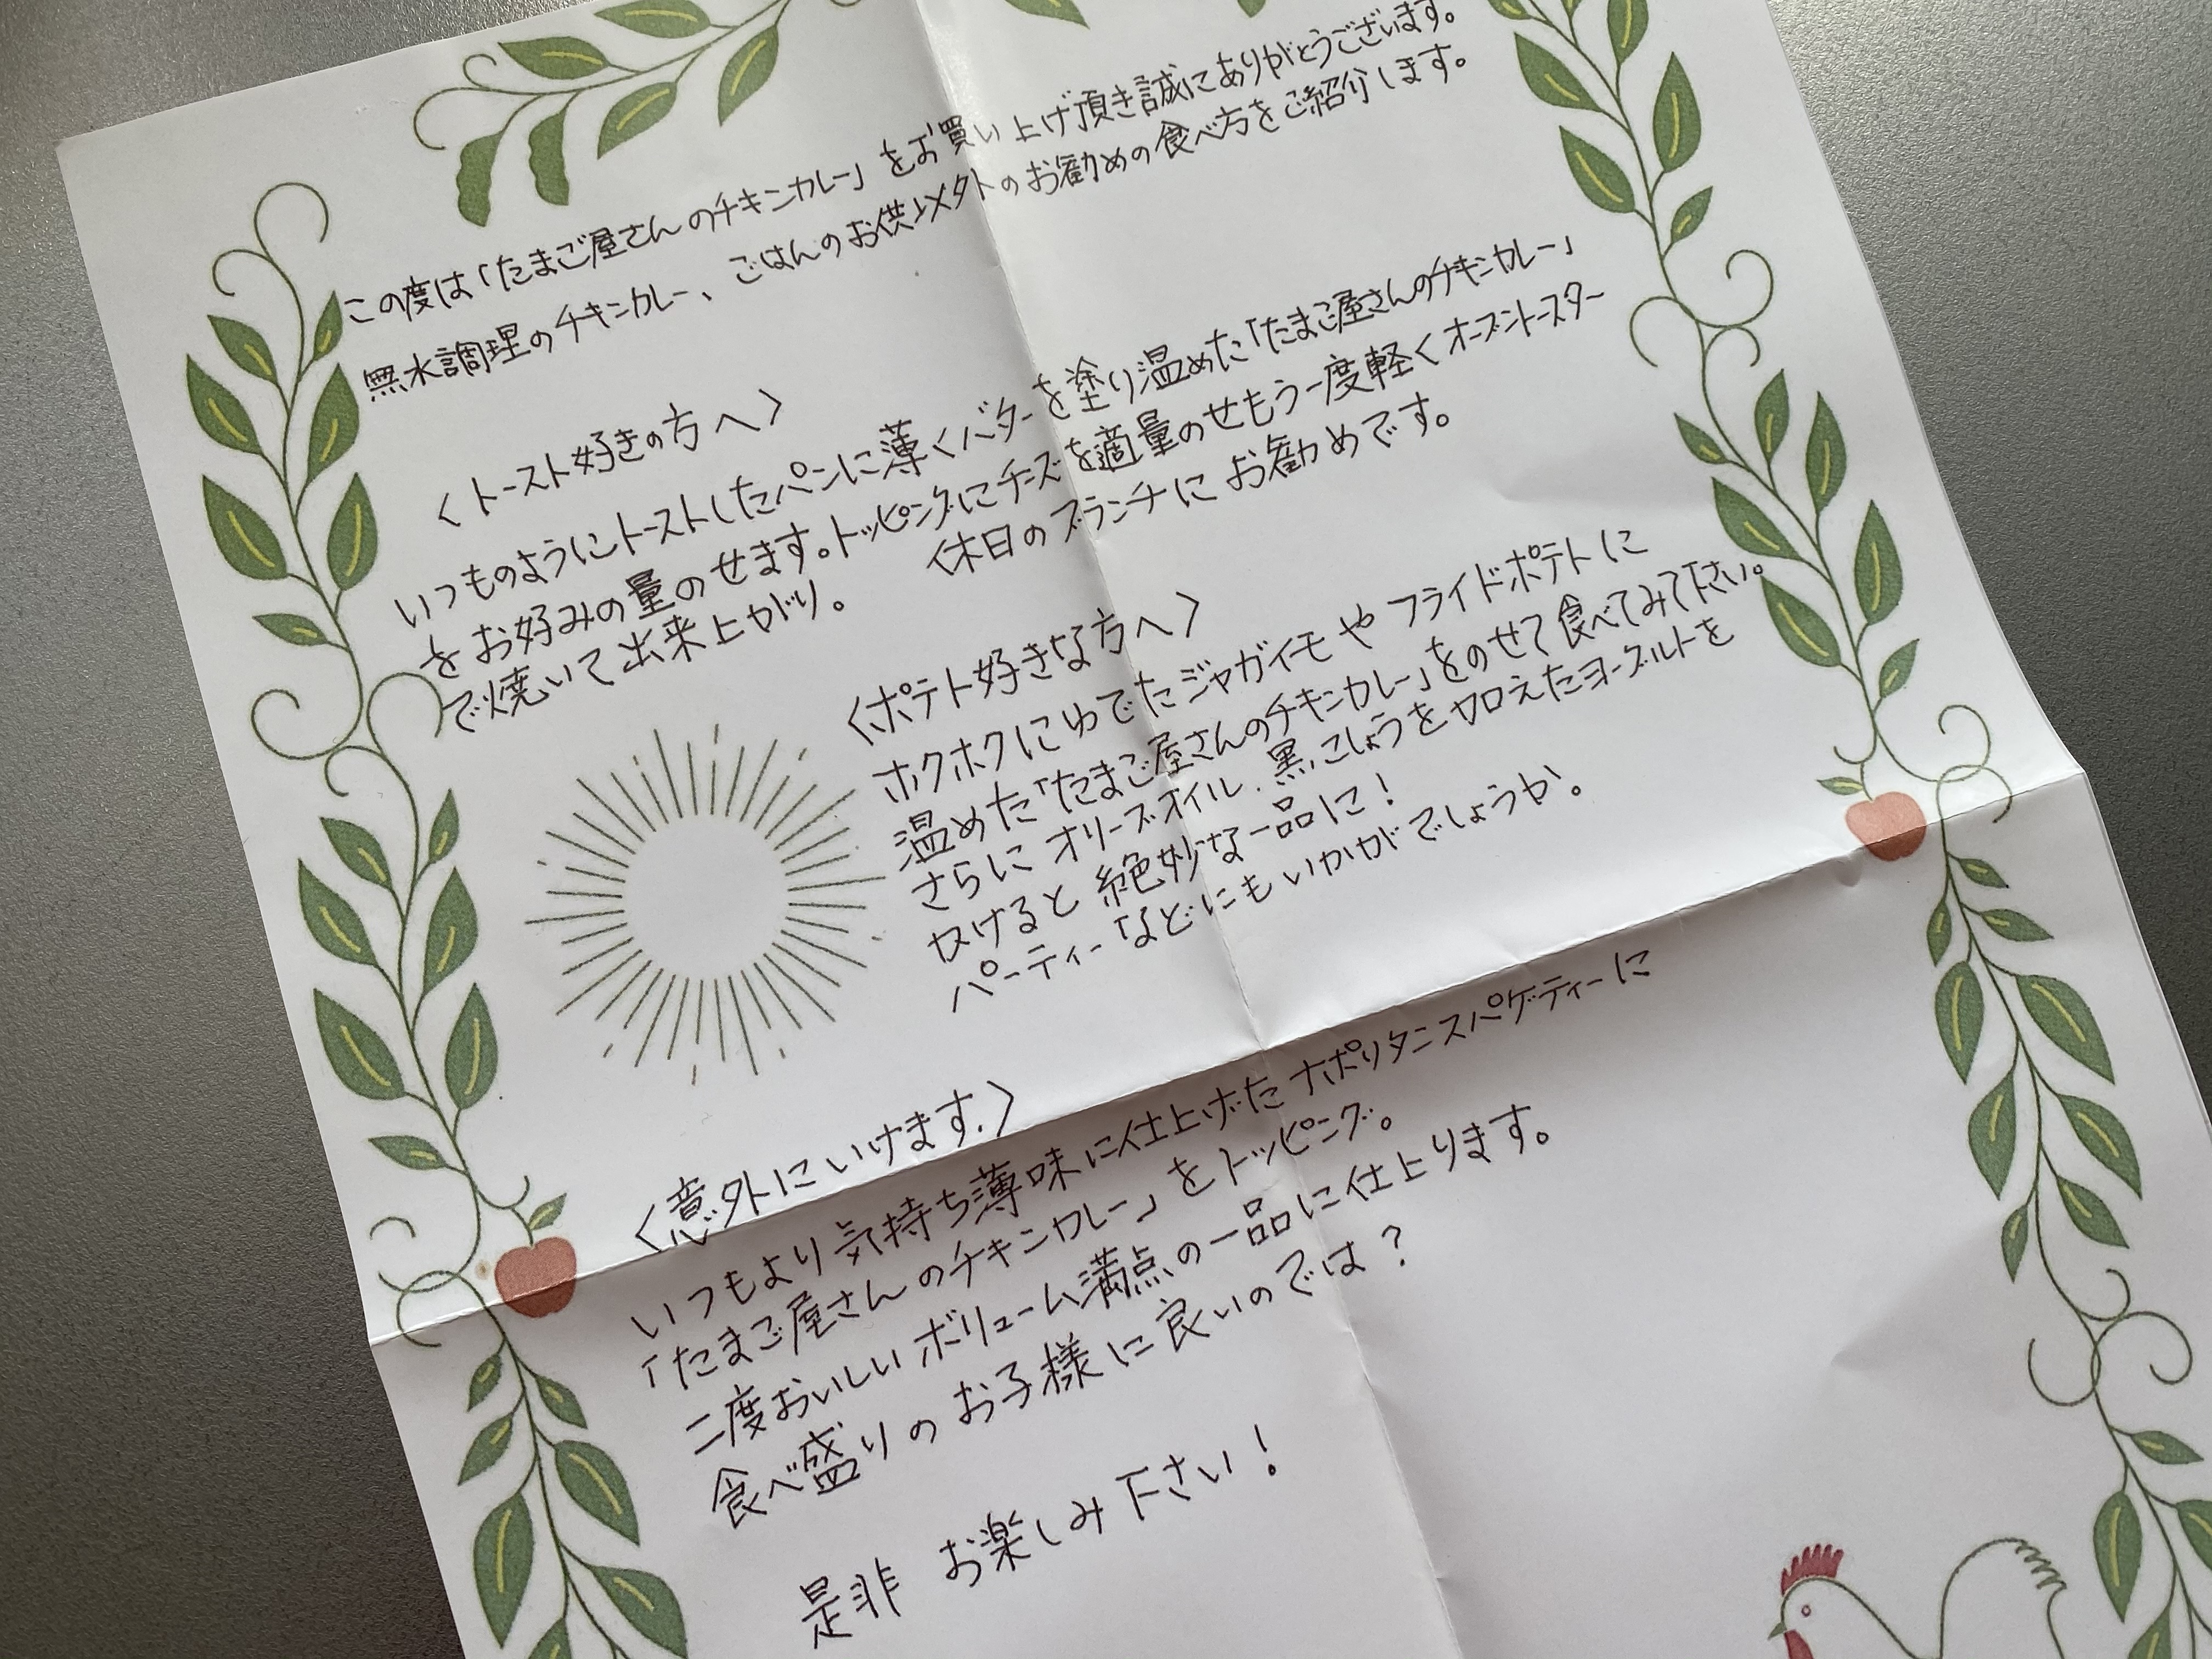 この度は「たまご屋さんのチキンカレー」をお買い上げ頂き誠にありがとうございます。
無水調理のチキンカレー、ごはんのお供以外のお勧めの食べ方をご紹介します。
〈トースト好きの方へ〉
いつものようにトーストしたパンに薄くバターを塗り温めた「たまご屋さんのチキンカレー」
をお好みの量のせます。トッピングにチーズを適量のせもう一度軽くオーブントースター
で焼いて出来上がり。 休日のブランチにお勧めです。
〈ポテト好きな方へ〉
ホクホクにゆでたジャガイモやフライドポテトに
温めた「たまご屋さんのチキンカレー」をのせて食べてみて下さい。
さらにオリーブオイル、黒こしょうを加えたヨーグルトを
かけると絶妙な一品に!
パーティーなどにもいかがでしょうか。
〈意外にいけます。〉
いつもより気持ち薄味に仕上げたナポリタンスパゲティーに
「たまご屋さんのチキンカレー」をトッピング。
二度おいしいボリューム満点の一品に仕上ります。
食べ盛りのお子様に良いのでは?
是非 お楽しみ下さい!